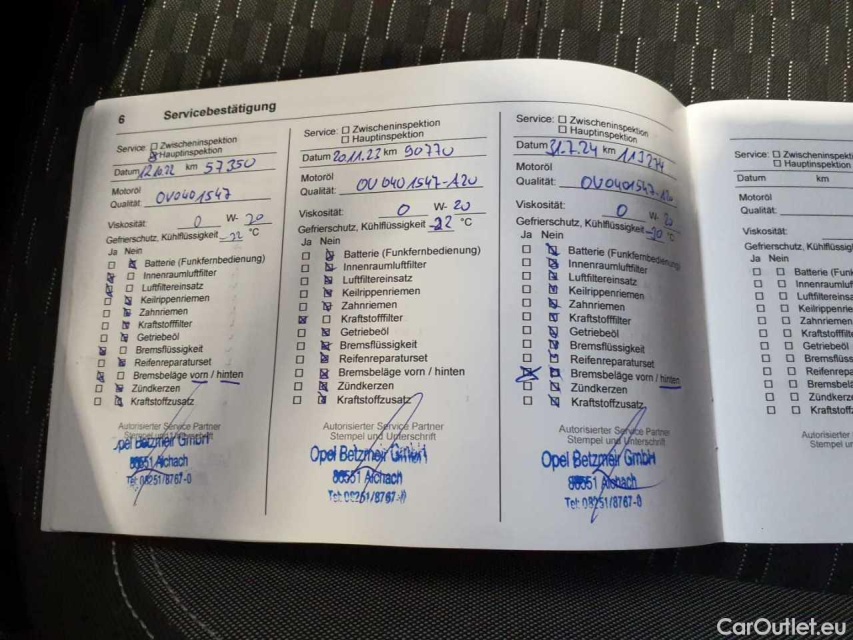 6 Servicebestätigung
Service: ☐ Zwischeninspektion
☒ Hauptinspektion
Datum 12.10.22 km 57350
Motoröl
Qualität: OV0401547
Viskosität: 0 W- 20
Gefrierschutz, Kühlflüssigkeit -22 °C
Ja Nein
☐ ☒ Batterie (Funkfernbedienung)
☒ ☐ Innenraumluftfilter
☒ ☐ Luftfiltereinsatz
☐ ☒ Keilrippenriemen
☐ ☒ Zahnriemen
☐ ☒ Kraftstofffilter
☐ ☒ Getriebeöl
☒ ☐ Bremsflüssigkeit
☐ ☒ Reifenreparaturset
☒ ☐ Bremsbeläge vorn / hinten
☐ ☒ Zündkerzen
☐ ☒ Kraftstoffzusatz
Autorisierter Service Partner
Stempel und Unterschrift
Opel Betzmeir GmbH
86551 Aichach
Tel: 08251/8767-0
Service: ☐ Zwischeninspektion
☐ Hauptinspektion
Datum 20.11.23 km 90770
Motoröl
Qualität: OV0401547-A20
Viskosität: 0 W- 20
Gefrierschutz, Kühlflüssigkeit -22 °C
Ja Nein
☐ ☒ Batterie (Funkfernbedienung)
☐ ☒ Innenraumluftfilter
☐ ☒ Luftfiltereinsatz
☐ ☒ Keilrippenriemen
☐ ☒ Zahnriemen
☒ ☐ Kraftstofffilter
☐ ☒ Getriebeöl
☐ ☒ Bremsflüssigkeit
☐ ☒ Reifenreparaturset
☐ ☒ Bremsbeläge vorn / hinten
☐ ☒ Zündkerzen
☐ ☒ Kraftstoffzusatz
Autorisierter Service Partner
Stempel und Unterschrift
Opel Betzmeir GmbH
86551 Aichach
Tel: 08251/8767-0
Service: ☐ Zwischeninspektion
☐ Hauptinspektion
Datum 31.7.24 km
Motoröl
Qualität: OV0401547-A20
Viskosität: 0 W- 20
Gefrierschutz, Kühlflüssigkeit -30 °C
Ja Nein
☐ ☒ Batterie (Funkfernbedienung)
☐ ☒ Innenraumluftfilter
☐ ☒ Luftfiltereinsatz
☐ ☒ Keilrippenriemen
☐ ☒ Zahnriemen
☐ ☒ Kraftstofffilter
☐ ☒ Getriebeöl
☐ ☒ Bremsflüssigkeit
☐ ☒ Reifenreparaturset
☒ ☒ Bremsbeläge vorn / hinten
☐ ☒ Zündkerzen
☐ ☒ Kraftstoffzusatz
Autorisierter Service Partner
Stempel und Unterschrift
Opel Betzmeir GmbH
86551 Aichach
Tel: 08251/8767-0
Service: ☐ Zwischeninspekti
☐ Hauptinspektion
Datum km
Motoröl
Qualität:
Viskosität:
Gefrierschutz, Kühlflüssig
Ja Nein
☐ ☐ Batterie (Funk
☐ ☐ Innenraumluf
☐ ☐ Luftfiltereinsa
☐ ☐ Keilrippenrie
☐ ☐ Zahnriemen
☐ ☐ Kraftstofffilter
☐ ☐ Getriebeöl
☐ ☐ Bremsflüss
☐ ☐ Reifenrepa
☐ ☐ Bremsbelä
☐ ☐ Zündkerze
☐ ☐ Kraftstoffz
Autorisierter
Stempel
CarOutlet.eu